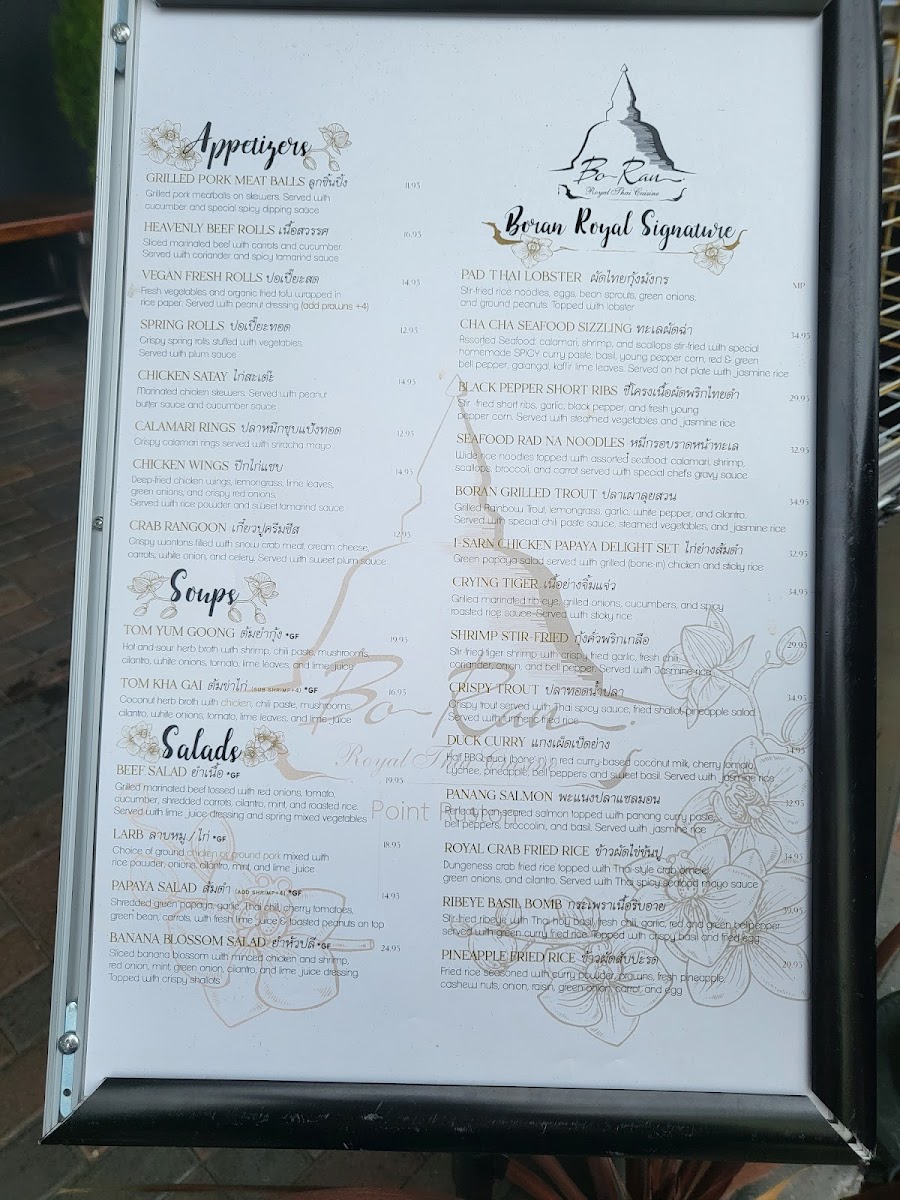 Appetizers
GRILLED PORK MEAT BALLS ลูกชิ้นปิ้ง 11.95
Grilled pork meatballs on skewers. Served with
cucumber and special spicy dipping sauce
HEAVENLY BEEF ROLLS เนื้อสวรรค์ 16.95
Sliced marinated beef with carrots and cucumber.
Served with coriander and spicy tamarind sauce
VEGAN FRESH ROLLS ปอเปี๊ยะสด 14.95
Fresh vegetables and organic fried tofu wrapped in
rice paper. Served with peanut dressing (add prawns +4)
SPRING ROLLS ปอเปี๊ยะทอด 12.95
Crispy spring rolls stuffed with vegetables.
Served with plum sauce
CHICKEN SATAY ไก่สะเต๊ะ 14.95
Marinated chicken skewers. Served with peanut
butter sauce and cucumber sauce
CALAMARI RINGS ปลาหมึกชุบแป้งทอด 12.95
Crispy calamari rings served with sriracha mayo
CHICKEN WINGS ปีกไก่แซบ 14.95
Deep-fried chicken wings, lemongrass, lime leaves,
green onions, and crispy red onions.
Served with rice powder and sweet tamarind sauce
CRAB RANGOON เกี๊ยวปูครีมชีส 12.95
Crispy wontons filled with snow crab meat, cream cheese,
carrots, white onion, and celery. Served with sweet plum sauce
Soups
TOM YUM GOONG ต้มยำกุ้ง *GF 19.95
Hot and sour herb broth with shrimp, chili paste, mushrooms,
cilantro, white onions, tomato, lime leaves, and lime juice
TOM KHA GAI ต้มข่าไก่ (SUB SHRIMP+4) *GF 16.95
Coconut herb broth with chicken, chili paste, mushrooms,
cilantro, white onions, tomato, lime leaves, and lime juice
Salads
BEEF SALAD ยำเนื้อ *GF 19.95
Grilled marinated beef tossed with red onions, tomato,
cucumber, shredded carrots, cilantro, mint, and roasted rice.
Served with lime juice dressing and spring mixed vegetables
LARB ลาบหมู / ไก่ *GF 18.95
Choice of ground chicken or ground pork mixed with
rice powder, onions, cilantro, mint, and lime juice
PAPAYA SALAD ส้มตำ (ADD SHRIMP+4) *GF 14.95
Shredded green papaya, garlic, Thai chili, cherry tomatoes,
green bean, carrots, with fresh lime juice & toasted peanuts on top
BANANA BLOSSOM SALAD ยำหัวปลี *GF 24.95
Sliced banana blossom with minced chicken and shrimp,
red onion, mint, green onion, cilantro, and lime juice dressing.
Topped with crispy shallots
Bo-Ran
Royal Thai Cuisine
Boran Royal Signature
PAD THAI LOBSTER ผัดไทยกุ้งมังกร MP
Stir-fried rice noodles, eggs, bean sprouts, green onions,
and ground peanuts. Topped with lobster
CHA CHA SEAFOOD SIZZLING ทะเลผัดฉ่า 34.95
Assorted Seafood: calamari, shrimp, and scallops stir-fried with special
homemade SPICY curry paste, basil, young peper corn, red & green
bell pepper, galangal, kaffir lime leaves. Served on hot plate with jasmine rice
BLACK PEPPER SHORT RIBS ซี่โครงเนื้อผัดพริกไทยดำ 29.95
Stir-fried short ribs, garlic, black pepper, and fresh young
pepper corn. Served with steamed vegetables and jasmine rice
SEAFOOD RAD NA NOODLES หมี่กรอบราดหน้าทะเล 32.95
Wide rice noodles topped with assorted seafood: calamari, shrimp,
scallops, broccoli, and carrot served with special chef's gravy sauce
BORAN GRILLED TROUT ปลาเผาลุยสวน 34.95
Grilled Rainbow Trout, lemongrass, garlic, white pepper, and cilantro.
Served with special chili paste sauce, steamed vegetables, and jasmine rice
I-SARN CHICKEN PAPAYA DELIGHT SET ไก่ย่างส้มตำ 32.95
Green papaya salad served with grilled (bone-in) chicken and sticky rice
CRYING TIGER เนื้อย่างจิ้มแจ่ว 34.95
Grilled marinated ribeye, grilled onions, cucumbers, and spicy
roasted rice sauce. Served with sticky rice
SHRIMP STIR-FRIED กุ้งคั่วพริกเกลือ 29.95
Stir-fried tiger shrimp with crispy fried garlic, fresh chili,
coriander, onion, and bell pepper. Served with Jasmine rice
CRISPY TROUT ปลาทอดน้ำปลา 34.95
Crispy trout served with Thai spicy sauce, fried shallot, pineapple salad.
Served with turmeric fried rice
DUCK CURRY แกงเผ็ดเป็ดย่าง 34.95
Half BBQ duck (bone in) in red curry-based coconut milk, cherry tomato,
Lychee, pineapple, bell peppers and sweet basil. Served with jasmine rice
PANANG SALMON พะแนงปลาแซลมอน 32.95
Perfectly pan-seared salmon topped with panang curry paste,
bell peppers, broccolini, and basil. Served with jasmine rice
ROYAL CRAB FRIED RICE ข้าวผัดไข่ข้นปู 34.95
Dungeness crab fried rice topped with Thai-style crab omelet,
green onions, and cilantro. Served with Thai spicy seafood mayo sauce
RIBEYE BASIL BOMB กระเพราเนื้อริบอาย 39.95
Stir-fried ribeye with Thai holy basil, fresh chili, garlic, red and green bell pepper
served with green curry fried rice. Topped with crispy basil and fried egg
PINEAPPLE FRIED RICE ข้าวผัดสับปะรด 29.95
Fried rice seasoned with curry powder, prawns, fresh pineapple,
cashew nuts, onion, raisin, green onion, carrot, and egg
Bo-Ran
Royal Thai Cuisine
Point Ruston